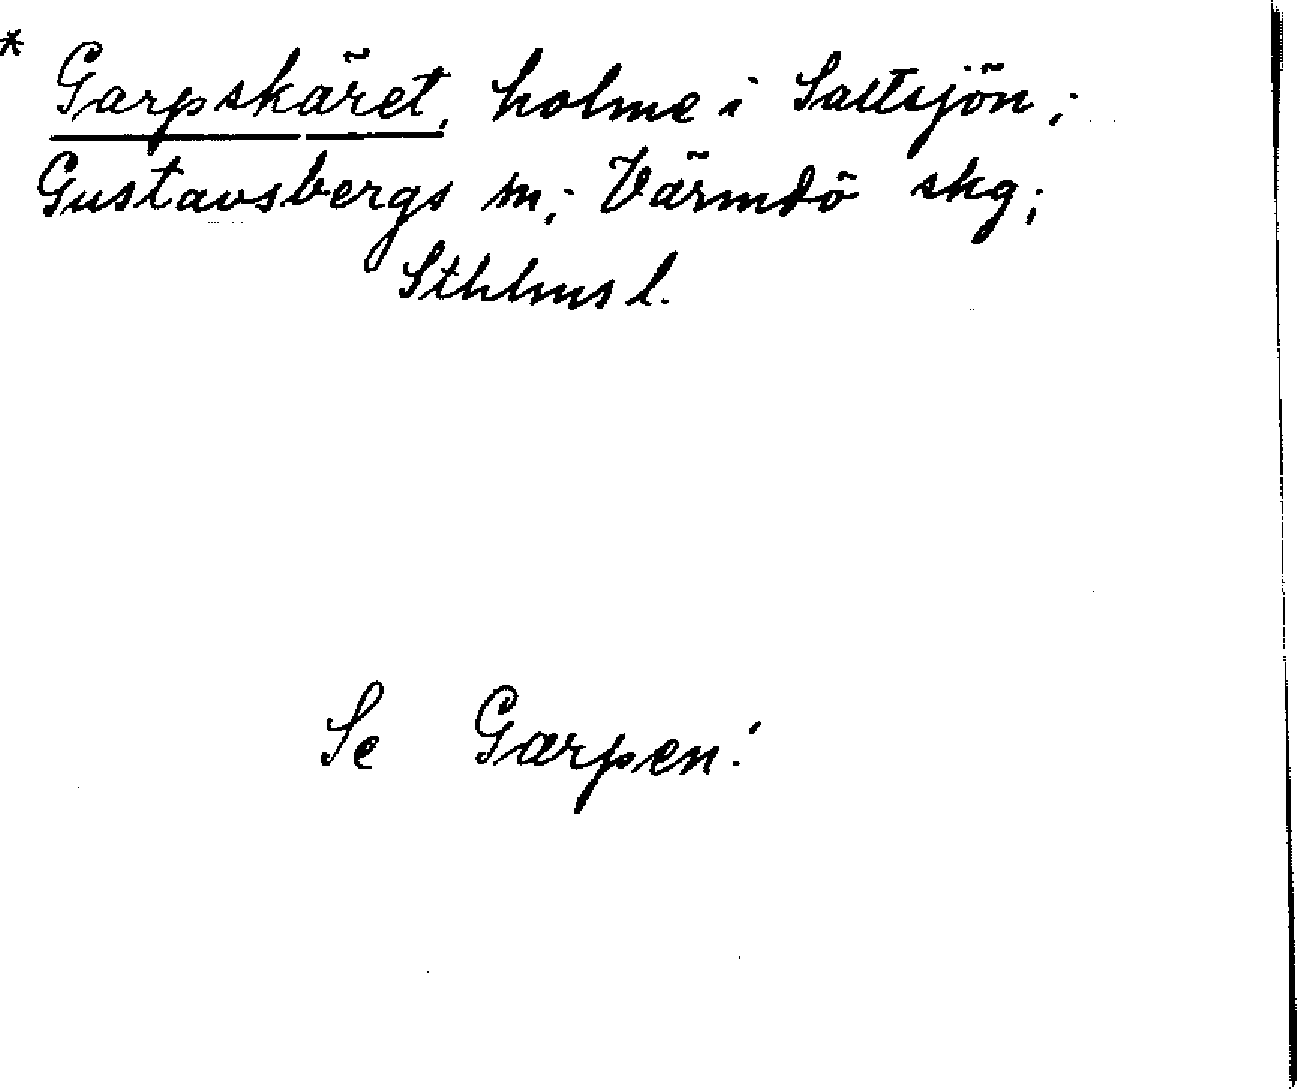 * Garpskäret, holme i Saltsjön;
Gustavsbergs sn; Värmdö skg;
Sthlms l.
Se Garpen!